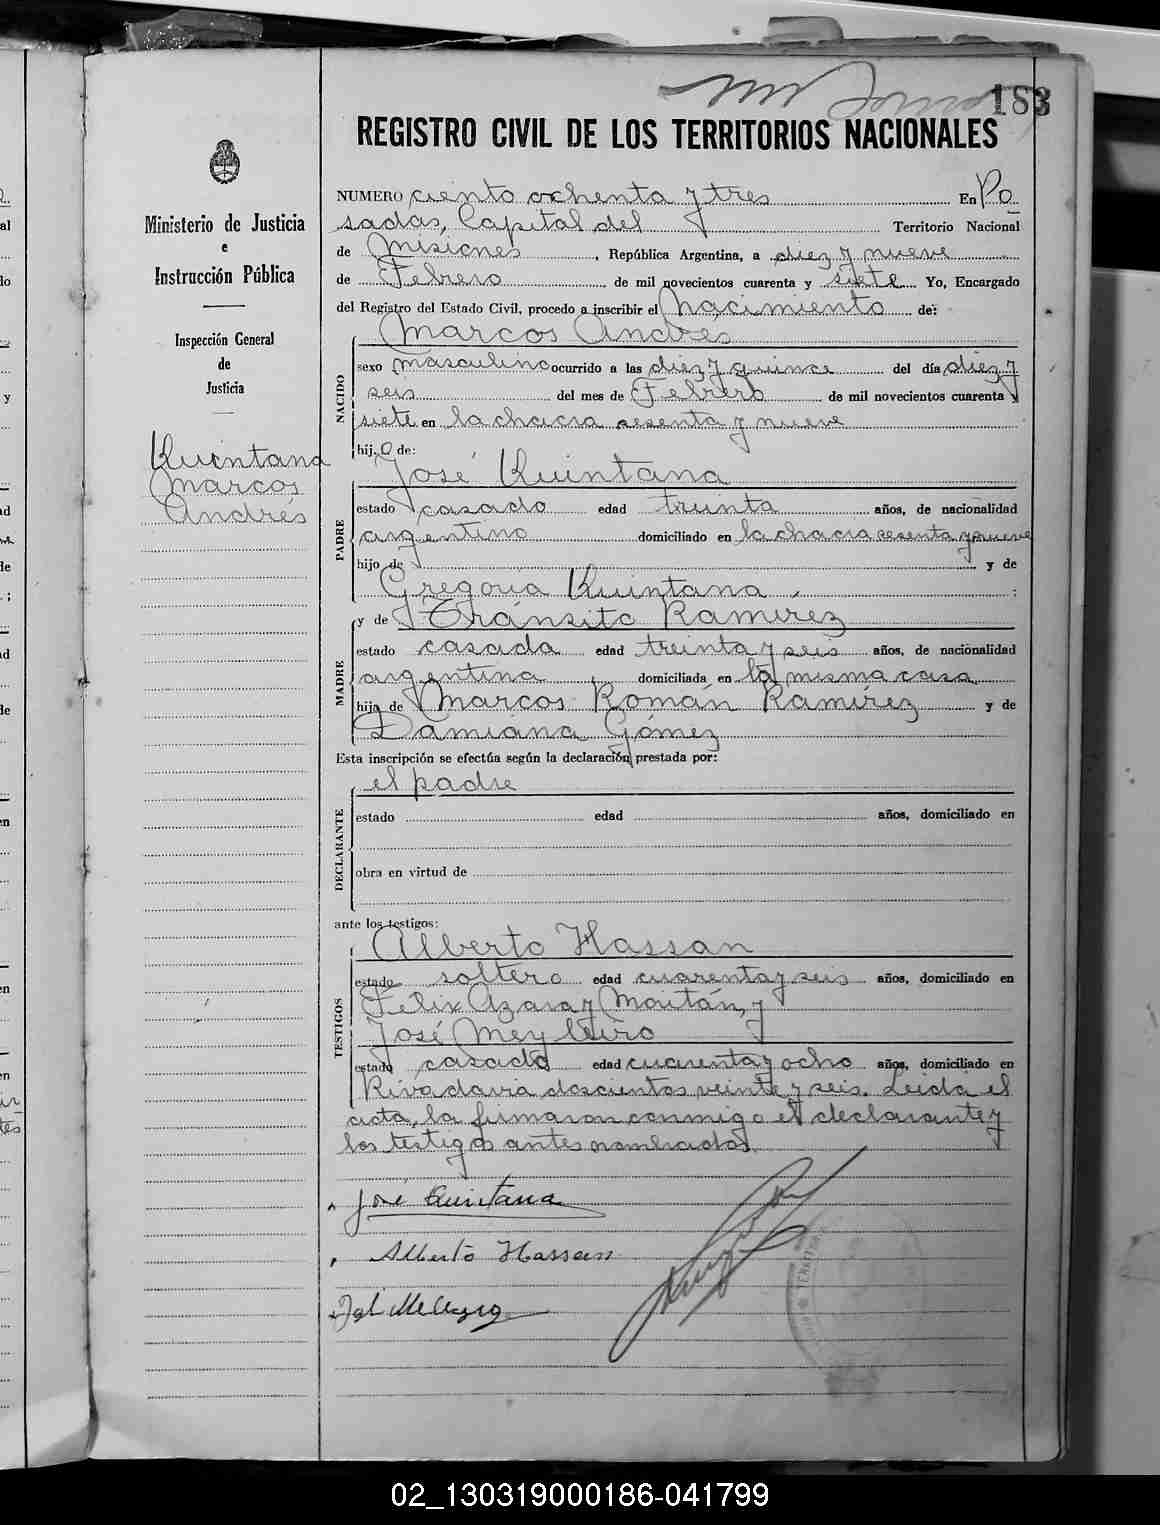 183
REGISTRO CIVIL DE LOS TERRITORIOS NACIONALES
Ministerio de Justicia
e
Instrucción Pública
Inspección General
de
Justicia
Quintana
Marcos
Andrés
NUMERO ciento ochenta y tres En Po
sadas, Capital del Territorio Nacional
de Misiones, República Argentina, a diez y nueve
de Febrero de mil novecientos cuarenta y siete Yo, Encargado
del Registro del Estado Civil, procedo a inscribir el Nacimiento de:
Marcos Andrés
NACIDO
sexo masculino ocurrido a las diez y quince del día diez y
seis del mes de Febrero de mil novecientos cuarenta y
siete en la chacra sesenta y nueve
hijo de:
José Quintana
PADRE
estado casado edad treinta años, de nacionalidad
argentino domiciliado en la chacra sesenta y nueve
hijo de y de
Gregoria Quintana
y de Tránsito Ramírez
MADRE
estado casada edad treinta y seis años, de nacionalidad
argentina domiciliada en la misma casa
hija de Marcos Román Ramírez y de
Damiana Gómez
Esta inscripción se efectúa según la declaración prestada por:
el padre
DECLARANTE
estado edad años, domiciliado en
obra en virtud de
ante los testigos:
Alberto Hassan
TESTIGOS
estado soltero edad cuarenta y seis años, domiciliado en
Felix Azara y Moitán, y
José Mey
estado casado edad cuarenta y ocho años, domiciliado en
Rivadavia doscientos veinte y seis. Leida el
acta, la firmaron conmigo el declarante y
los testigos antes nombrados.
José Quintana
Alberto Hassan
02_130319000186-041799